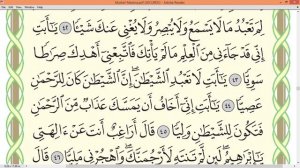 لِمَ تَعْبُدُ مَا لَا يَسْمَعُ وَلَا يُبْصِرُ وَلَا يُغْنِي عَنكَ شَيْئًا ٤٢ يَٰٓأَبَتِ
إِنِّي قَدْ جَآءَنِي مِنَ الْعِلْمِ مَا لَمْ يَأْتِكَ فَاتَّبِعْنِيٓ أَهْدِكَ صِرَٰطًا
سَوِيًّا ٤٣ يَٰٓأَبَتِ لَا تَعْبُدِ الشَّيْطَٰنَ إِنَّ الشَّيْطَٰنَ كَانَ لِلرَّحْمَٰنِ
عَصِيًّا ٤٤ يَٰٓأَبَتِ إِنِّيٓ أَخَافُ أَن يَمَسَّكَ عَذَابٌ مِّنَ الرَّحْمَٰنِ
فَتَكُونَ لِلشَّيْطَٰنِ وَلِيًّا ٤٥ قَالَ أَرَاغِبٌ أَنتَ عَنْ ءَالِهَتِي
يَٰٓإِبْرَٰهِيمُ لَئِن لَّمْ تَنتَهِ لَأَرْجُمَنَّكَ وَاهْجُرْنِي مَلِيًّا ٤٦